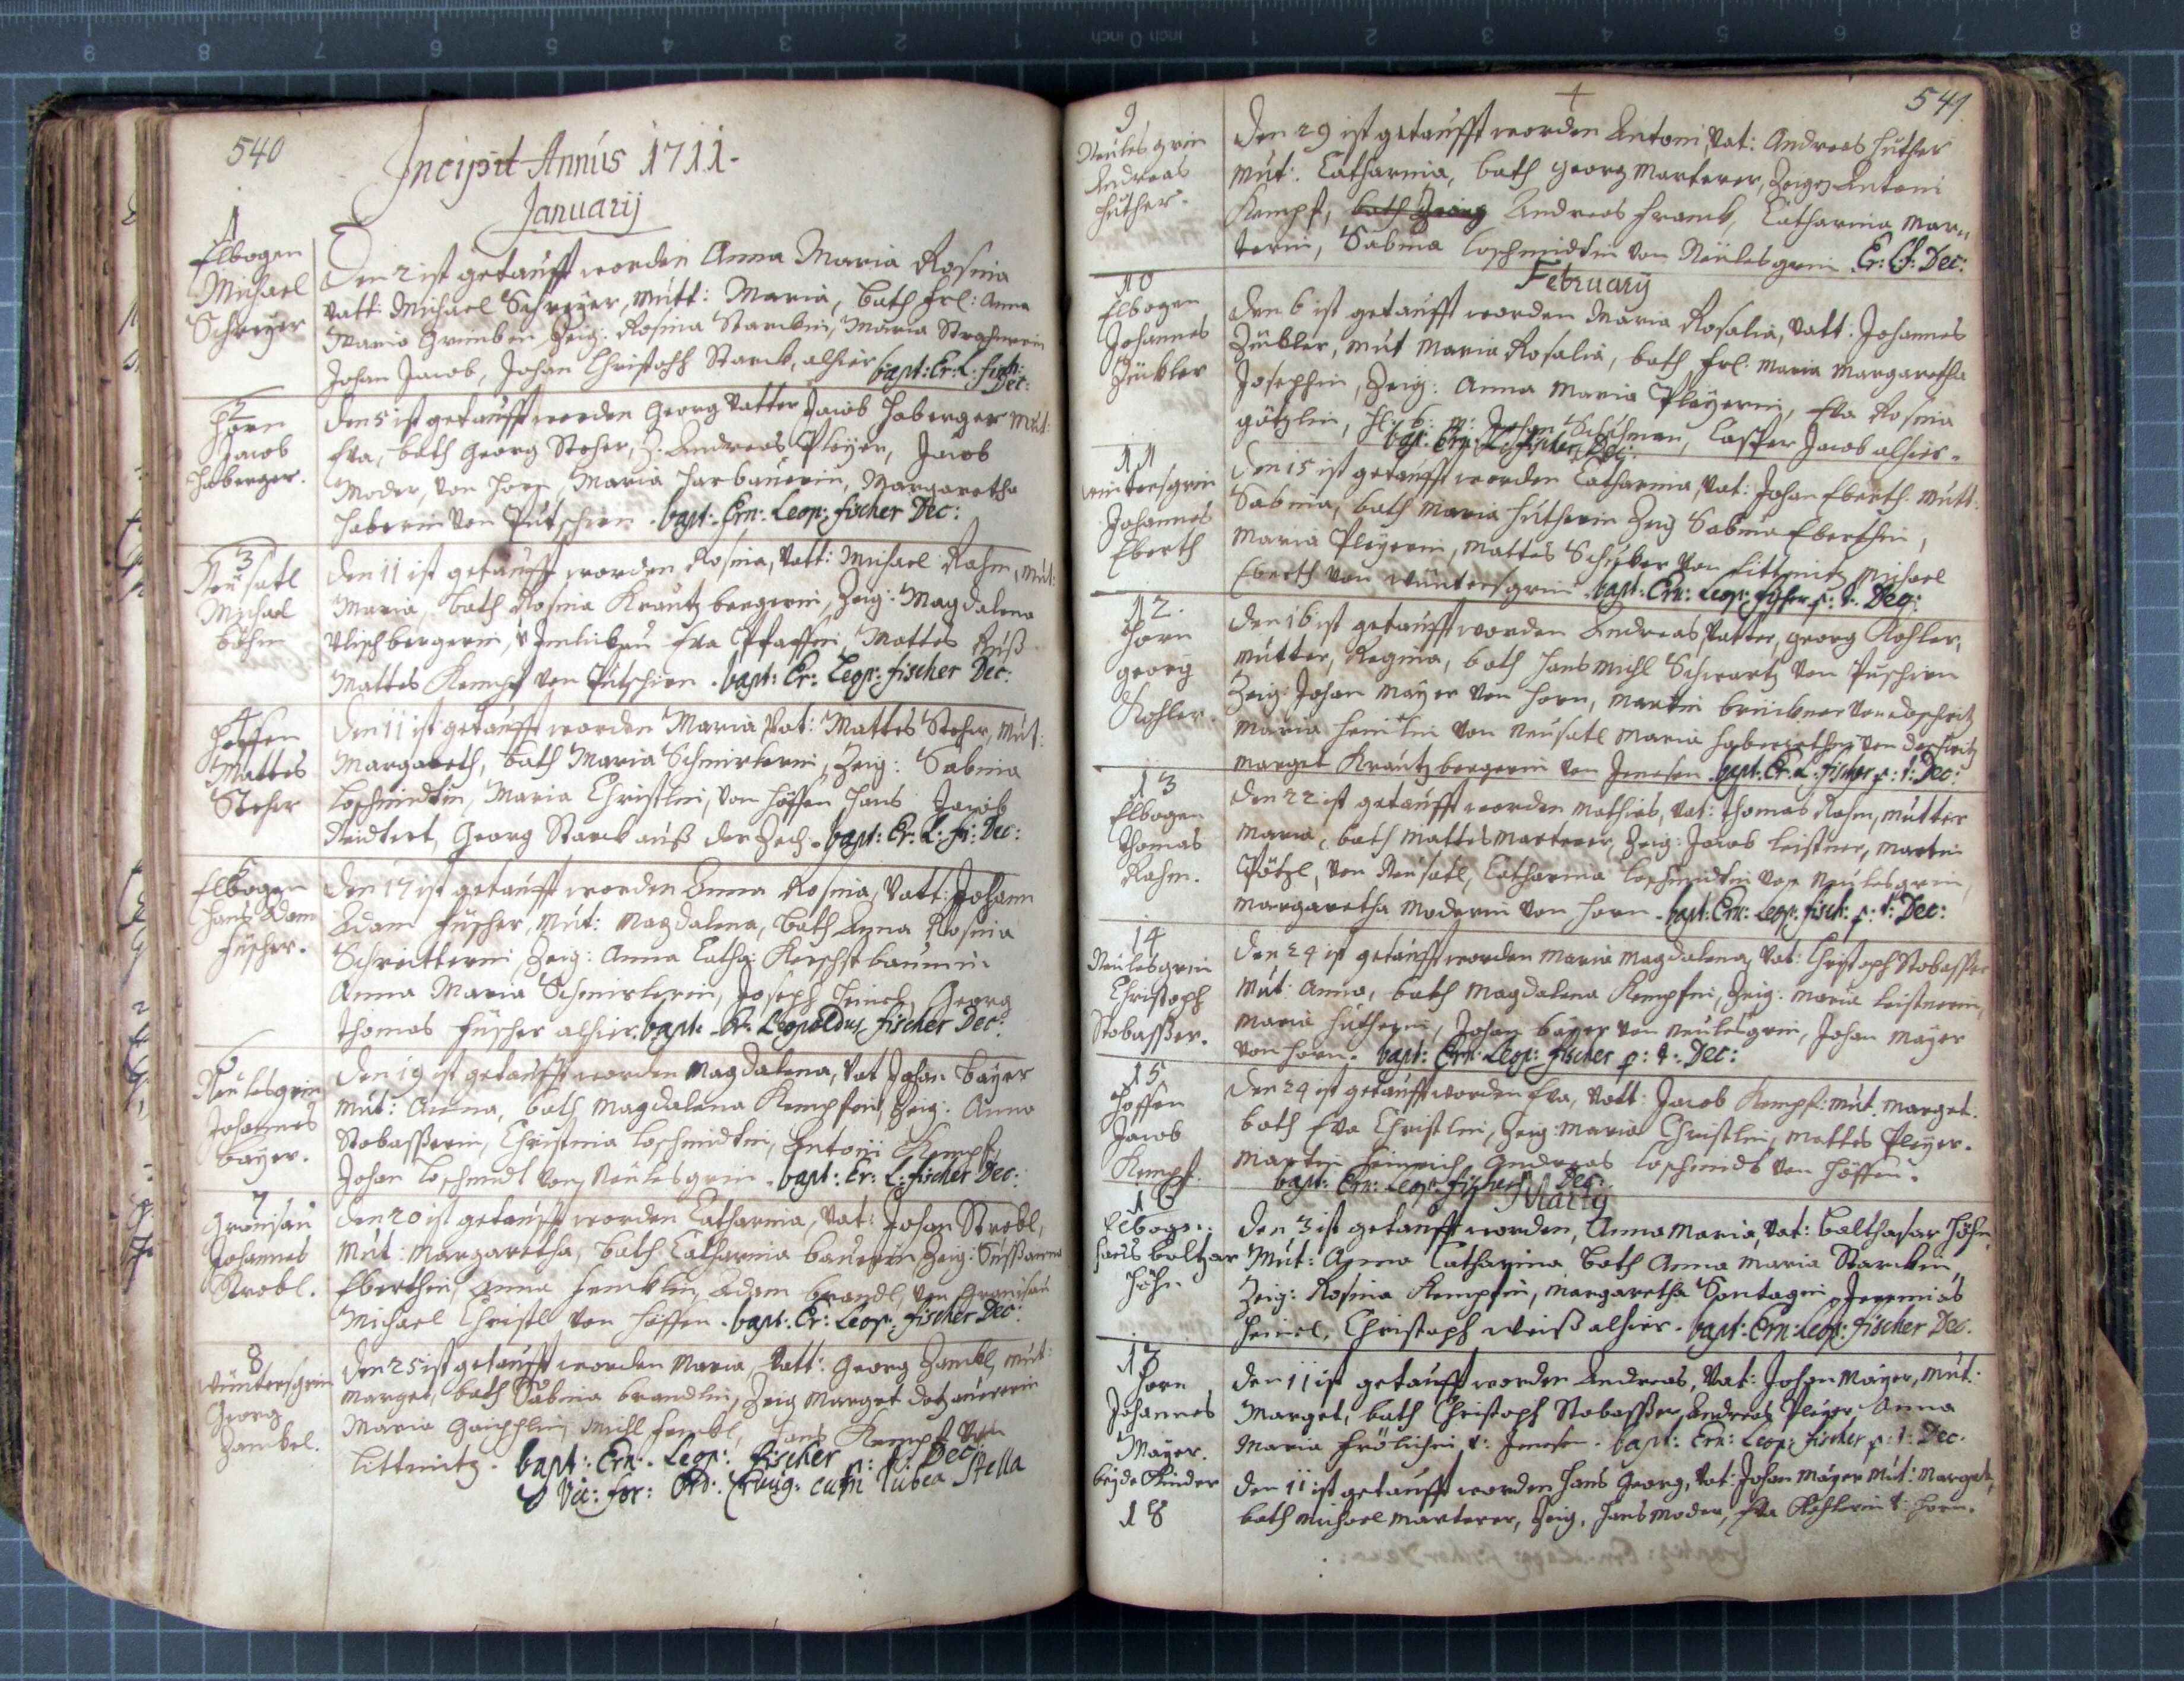 540
Incipit Annus 1711.
Januarij
1
Elbogen
Michael
Schreyer
Den 2 ist getaufft worden Anna Maria Rosina
Vatt: Michael Schreyer, Mutt: Maria, bath Frl: Anna
Maria Zeig: Rosina Starckin, Maria
Johan Jacob, Johan Christoph Starck, alhier bapt: Er: L: fisch:
Dec:
2
Horn
Jacob
Haberzer.
Den 5 ist getaufft worden Georg Vatter Jacob Haberger Mut:
Eva, bath Georg Stoher, Z: Andreas Pleyer, Jacob
Moder, von Horn, Maria Harbauerin, Margaretha
Haberin von Putschirn. bapt: Ern: Leop: fischer Dec:
3
Neusatl
Michael
Den 11 ist getaufft worden Rosina, Vatt: Michael Rahm, Mut:
Maria, bath Rosina Krautzbergerin, Zeig: Magdalena
Eva Pfaffin, Mattes
Mattes Kempf von Putschirn. bapt: Er: Leop: fischer Dec:
4
Höffen
Mattes
Stehr
Den 11 ist getaufft worden Maria Vat: Mattes Stehr, Mut:
Margareth, bath Maria Schmirlerin, Zeig: Sabina
Loschmidtin, Maria Christlin, von Höffen Hans Jacob
Georg Starck auß der Zech. bapt: Er: L: fi: Dec:
5
Elbogen
Hans Adam
Füscher.
Den 17 ist getaufft worden Anna Rosina, Vatt: Johann
Adam Füscher, Mut: Magdalena, bath Anna Rosina
Schreitterin, Zeig: Anna Catha: Kerschbaumin
Anna Maria Schmirlerin, Joseph Heinel, Georg
Thomas Füscher alhier. bapt: Er: Leopoldus fischer Dec:
6
Neulesgrin
Johannes
Bayer.
Den 19 ist getaufft worden Magdalena, Vat Johan Bayer
Mut: Anna, bath Magdalena Kempfin, Zeig: Anna
Stobasserin, Christina Loschmidtin, Antoni Kempf
Johan Loschmidt von Neulesgrin. bapt: Er: L: fischer Dec:
7
Granisau
Johannes
Strobl.
Den 20 ist getaufft worden Catharina, Vat: Johan Strobl,
Mut: Margaretha, bath Catharina Bauerin Zeig: Susanna
Eberthin, Anna Adam Brandl, von Granisau
Michael Christl von Höffen. bapt: Er: Leop: fischer Dec:
8
Wüntersgrin
Georg
Zankel.
Den 25 ist getaufft worden Maria, Vatt: Georg Zankl, Mut:
Marget, bath Sabina Brandlin, Zeig Marget
Maria Michl Hans Kempf von
Littmitz. bapt: Ern: Leop: fischer p: t: Dec:
Vic: for: Ord: Cruig: cum rubea Stella
541
9
Neulesgrin
Andreas
Huther.
Den 29 ist getaufft worden Antoni, Vat: Andreas Huther
Mut: Catharina, bath Georg Marterer, Zeigen Antoni
Kempf, bath Georg Andreas Franck, Catharina Mar,,
terin, Sabina Loschmidtin von Neulesgrin Er: L: f: Dec:
February
10
Elbogen
Johannes
Zückler
Den 6 ist getaufft worden Maria Rosalia, Vatt: Johannes
Zückler, Mut Maria Rosalia, bath Frl. Maria Margaretha
Josephin, Zeig: Anna Maria Pleyerin, Eva Rosina
Götzlin, Johan Casper Jacob alhier.
bap: Ern: L: fischer Dec:
11
Wintersgrin
Johannes
Eberth
Den 15 ist getaufft worden Catharina, Vat: Johan Eberth. Mutt:
Sabina, bath Maria Hutherin Zeig Sabina Eberthin,
Maria Pleyerin, Mattes von Littmitz Michael
Eberth von Wüntersgrin. bapt: Ern: Leop: fischer p: t: Dec:
12.
Horn
Georg
Kohler.
Den 16 ist getaufft worden Andreas, Vatter, Georg Kohler,
Mutter, Regina, bath Hans Michl Schwartz von Puschirn
Zeig: Johan Mayer von Horn, Martin Brückner von
Maria von Neusatl Maria von
Marget Krautzbergerin von Janesen. bapt: Er: L: fischer p: t: Dec:
13
Elbogen
Thomas
Rahm.
Den 22 ist getaufft worden Mathias, Vat: Thomas Rahm, Mutter
Maria, bath Mattes Marterer, Zeig: Jacob Leistner, Martin
Pötzl, von Neusatl, Catharina Loschmidtin von Neulesgrin,
Margaretha Moderin von Horn. bapt: Ern: Leop: fisch: p: t: Dec:
14
Neulesgrin
Christoph
Stobasser.
Den 24 ist getaufft worden Maria Magdalena, Vat: Christoph Stobasser
Mut: Anna, bath Magdalena Kempfin, Zeig: Maria Leistnerin,
Maria Hutherin, Johan Bayer von Neulesgrin, Johan Mayer
von Horn. bapt: Ern: Leop: fischer p: t: Dec:
15
Höffen
Jacob
Kempf.
Den 24 ist getaufft worden Eva, Vatt: Jacob Kempf: Mut. Marget.
bath Eva Christlin, Zeig: Maria Christlin, Mattes Pleyer.
Martin Heinrich, Andreas Loschmidt von Höffen.
bapt: Ern: Leop: fischer Dec:
Marty
16
Elbogen.
Hans Baltzar
Höhn
Den 3 ist getaufft worden, Anna Maria, Vat: Balthasar Höhn,
Mut: Anna Catharina bath Anna Maria Starckin,
Zeig: Rosina Kempfin, Margaretha Sontagin, Jeremias
Heinel, Christoph Weiß alhier. bapt: Ern: Leop: fischer Dec.
17
Horn
Johannes
Mayer.
beyde Kinder
18
Den 11 ist getaufft worden Andreas, Vat: Johan Mayer, Mut:
Marget, bath Christoph Stobasser, Andreas Pleyer, Anna
Maria Frölichin v: Janesen. bapt: Ern: Leop: fischer p: t: Dec.
Den 11 ist getaufft worden Hans Georg, Vat: Johan Mayer Mut: Marget,
bath Michael Marterer, Zeig. Hans Moder, Eva Kohlerin v: Horn.